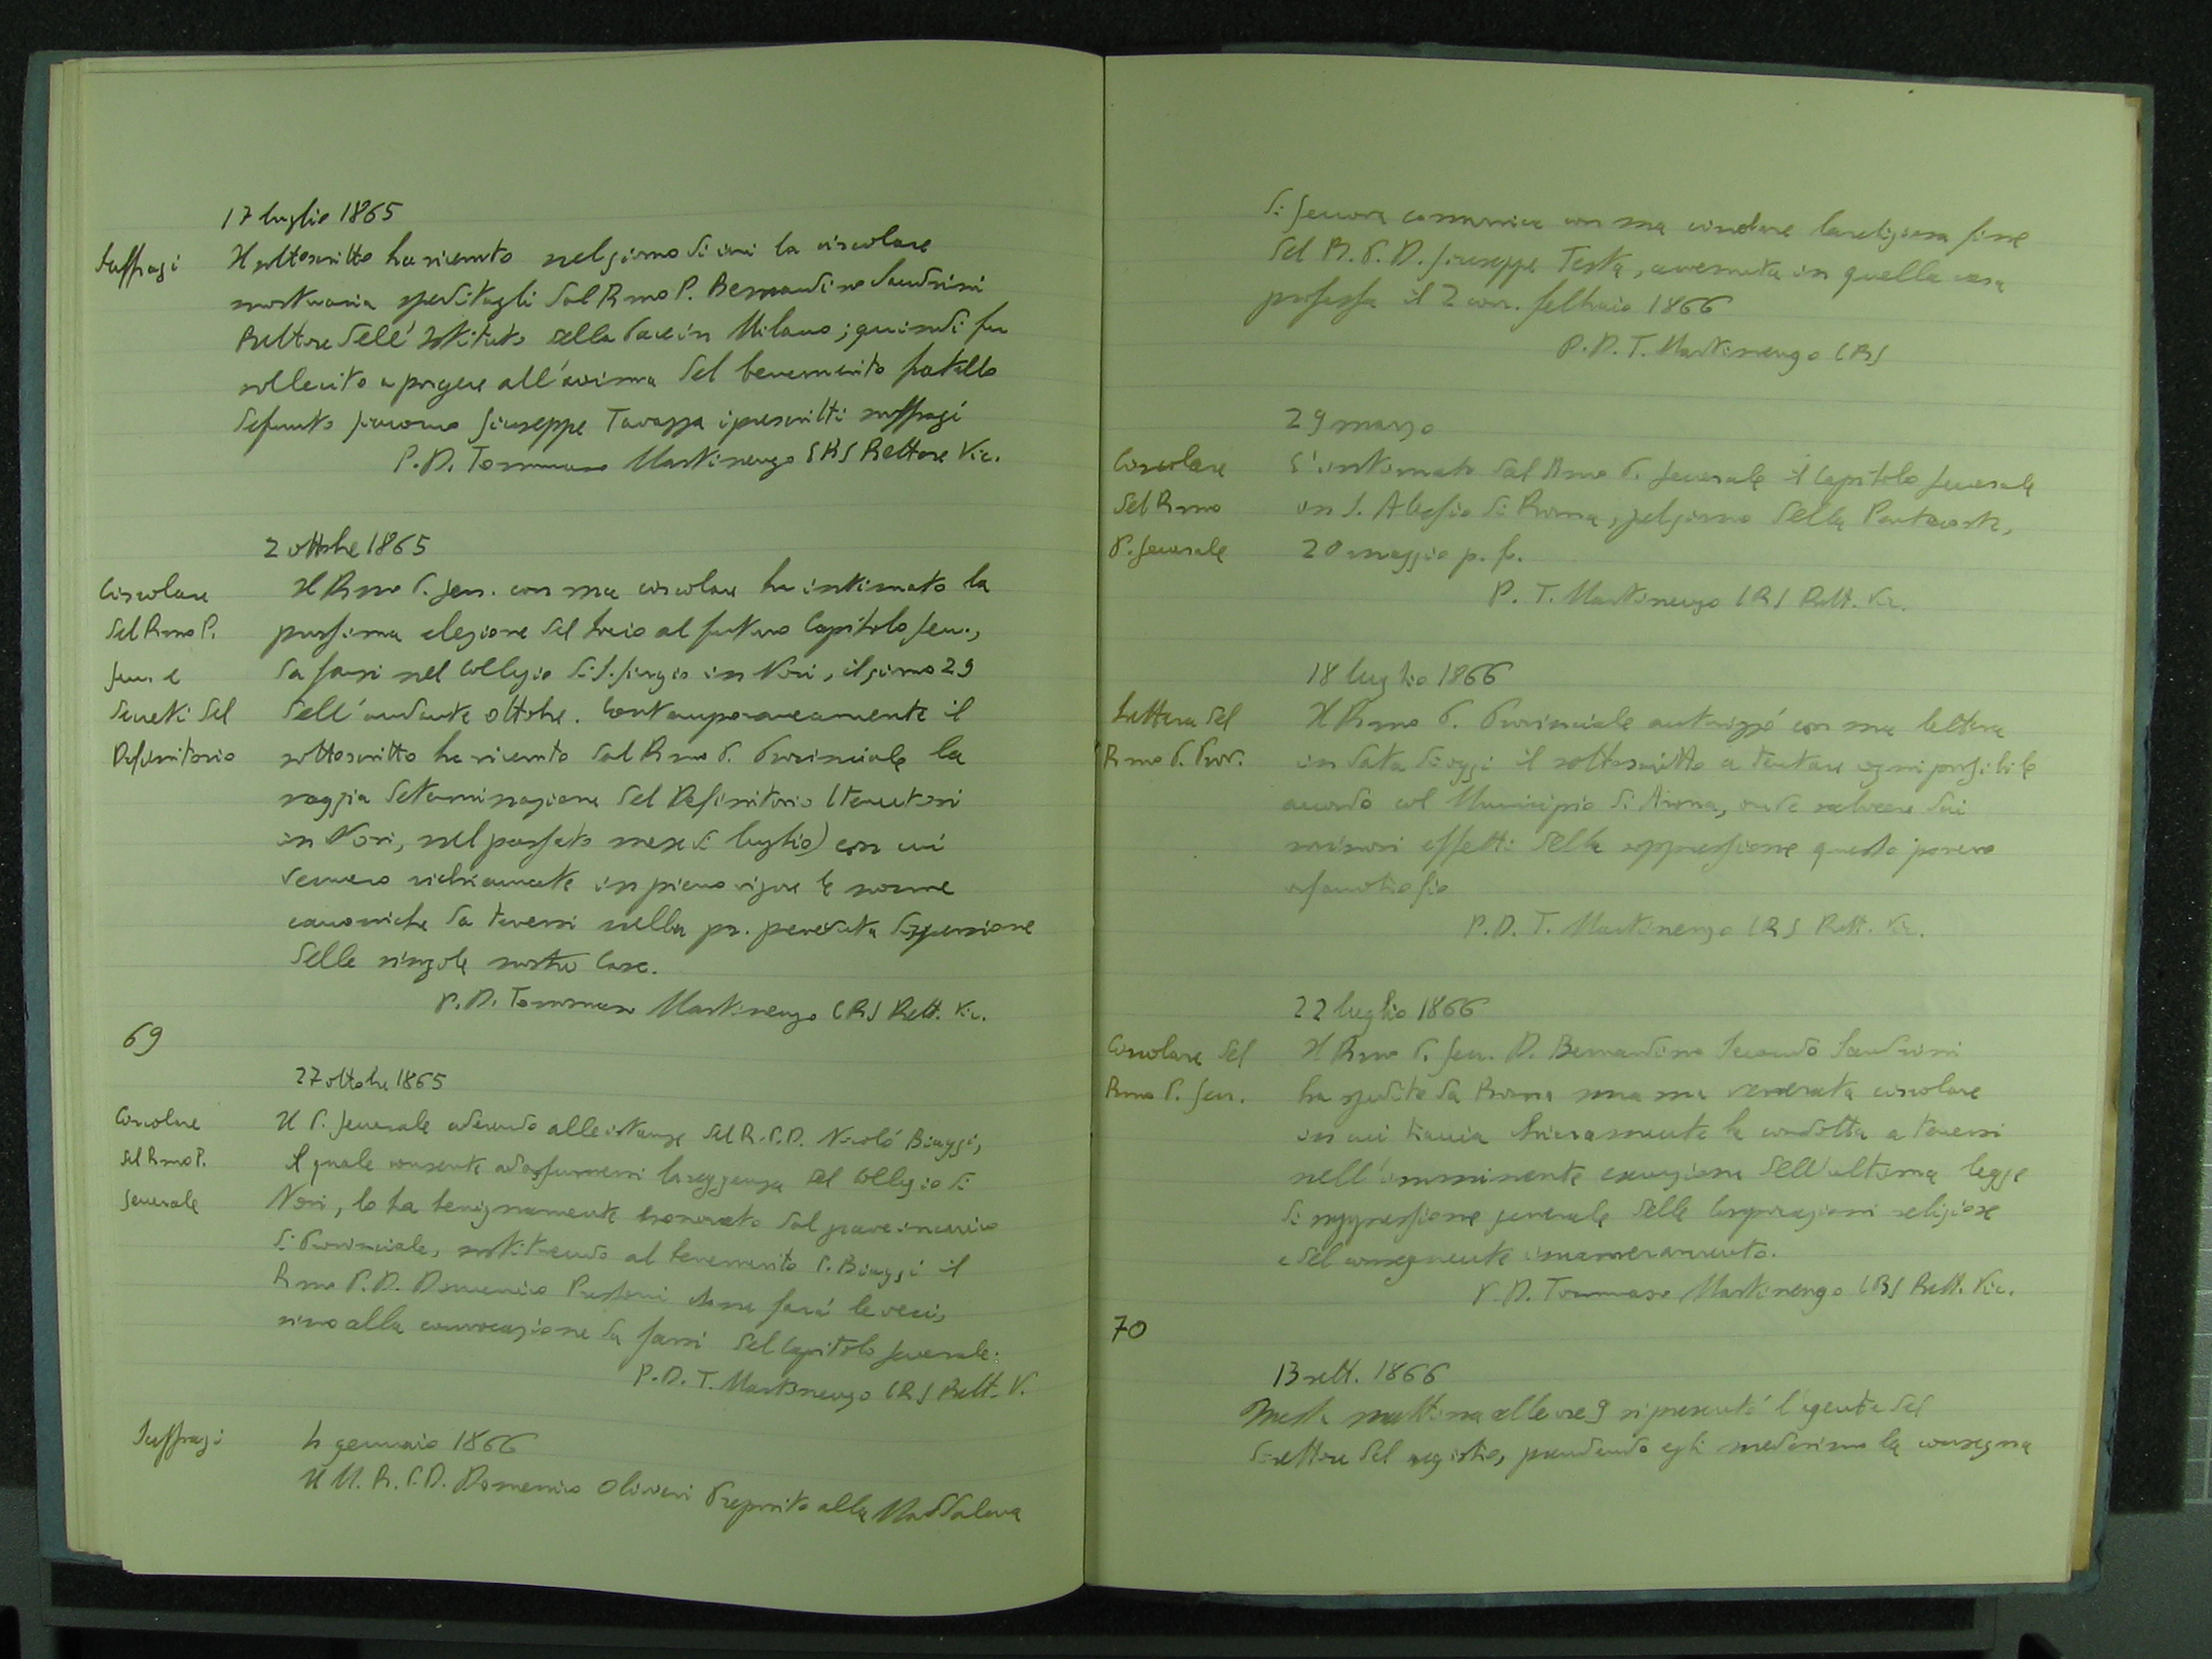 17 luglio 1865
Suffragi
Il sottoscritto ha ricevuto nel giorno di ieri la circolare
mortuaria speditagli dal Rmo P. Bernardino Sandrini
Rettore dell'Istituto della Pace in Milano; quindi fu
sollecito a porgere all'anima del benemerito fratello
defunto Giacomo Giuseppe Tavazza i prescritti suffragi
P. D. Tommaso Martinengo CRS Rettore Vic.
2 ottobre 1865
Circolare
del Rmo P.
Gen. e
Decreti del
Definitorio
Il Rmo P. Gen. con sua circolare ha intimato la
prossima elezione del socio al futuro Capitolo Gen.,
da farsi nel Collegio di S. Giorgio in Novi, il giorno 29
dell'andante ottobre. Contemporaneamente il
sottoscritto ha ricevuto dal Rmo P. Provinciale la
saggia determinazione del Definitorio (tenutosi
in Novi, nel passato mese di luglio) con cui
vennero richiamate in pieno vigore le norme
canoniche da tenersi nella pr. preveduta dispersione
delle singole nostre Case.
P. D. Tommaso Martinengo CRS Rett. Vic.
69
27 ottobre 1865
Circolare
del Rmo P.
Generale
Il P. Generale aderendo alle istanze del R. P. D. Nicolò Biaggi,
il quale consente ad assumersi la reggenza del Collegio di
Novi, lo ha benignamente esonerato dal grave incarico
di Provinciale, sostituendo al benemerito P. Biaggi il
Rmo P. D. Domenico Pressoni che ne farà le veci,
sino alla convocazione da farsi del Capitolo Generale.
P. D. T. Martinengo CRS Rett. V.
Suffragi
4 gennaio 1866
Il M. R. P. D. Domenico Olivieri Preposito alla Maddalena
di Genova comunica con sua circolare la religiosa fine
del R. P. D. Giuseppe Testa, avvenuta in quella casa
professa il 2 corr. febbraio 1866
P. D. T. Martinengo CRS
29 marzo
Circolare
del Rmo
P. Generale
È intimato dal Rmo P. Generale il Capitolo Generale
in S. Alessio di Roma, pel giorno della Pentecoste,
20 maggio p. f.
P. T. Martinengo CRS Rett. Vic.
18 luglio 1866
Lettera del
Rmo P. Prov.
Il Rmo P. Provinciale autorizzò con sua lettera
in data di oggi il sottoscritto a tentare ogni possibile
accordo col Municipio di Arona, onde salvare dai
sinistri effetti della soppressione questo povero
orfanotrofio
P. D. T. Martinengo CRS Rett. Vic.
22 luglio 1866
Circolare del
Rmo P. Gen.
Il Rmo P. Gen. D. Bernardino Secondo Sandrini
ha spedito da Roma una sua venerata circolare
in cui traccia chiaramente la condotta a tenersi
nell'imminente esecuzione dell'ultima legge
di soppressione generale delle Corporazioni religiose
e del conseguente incameramento.
P. D. Tommaso Martinengo CRS Rett. Vic.
70
13 sett. 1866
Questa mattina alle ore 9 si presentò l'agente del
direttore del registro, prendendo egli medesimo la consegna